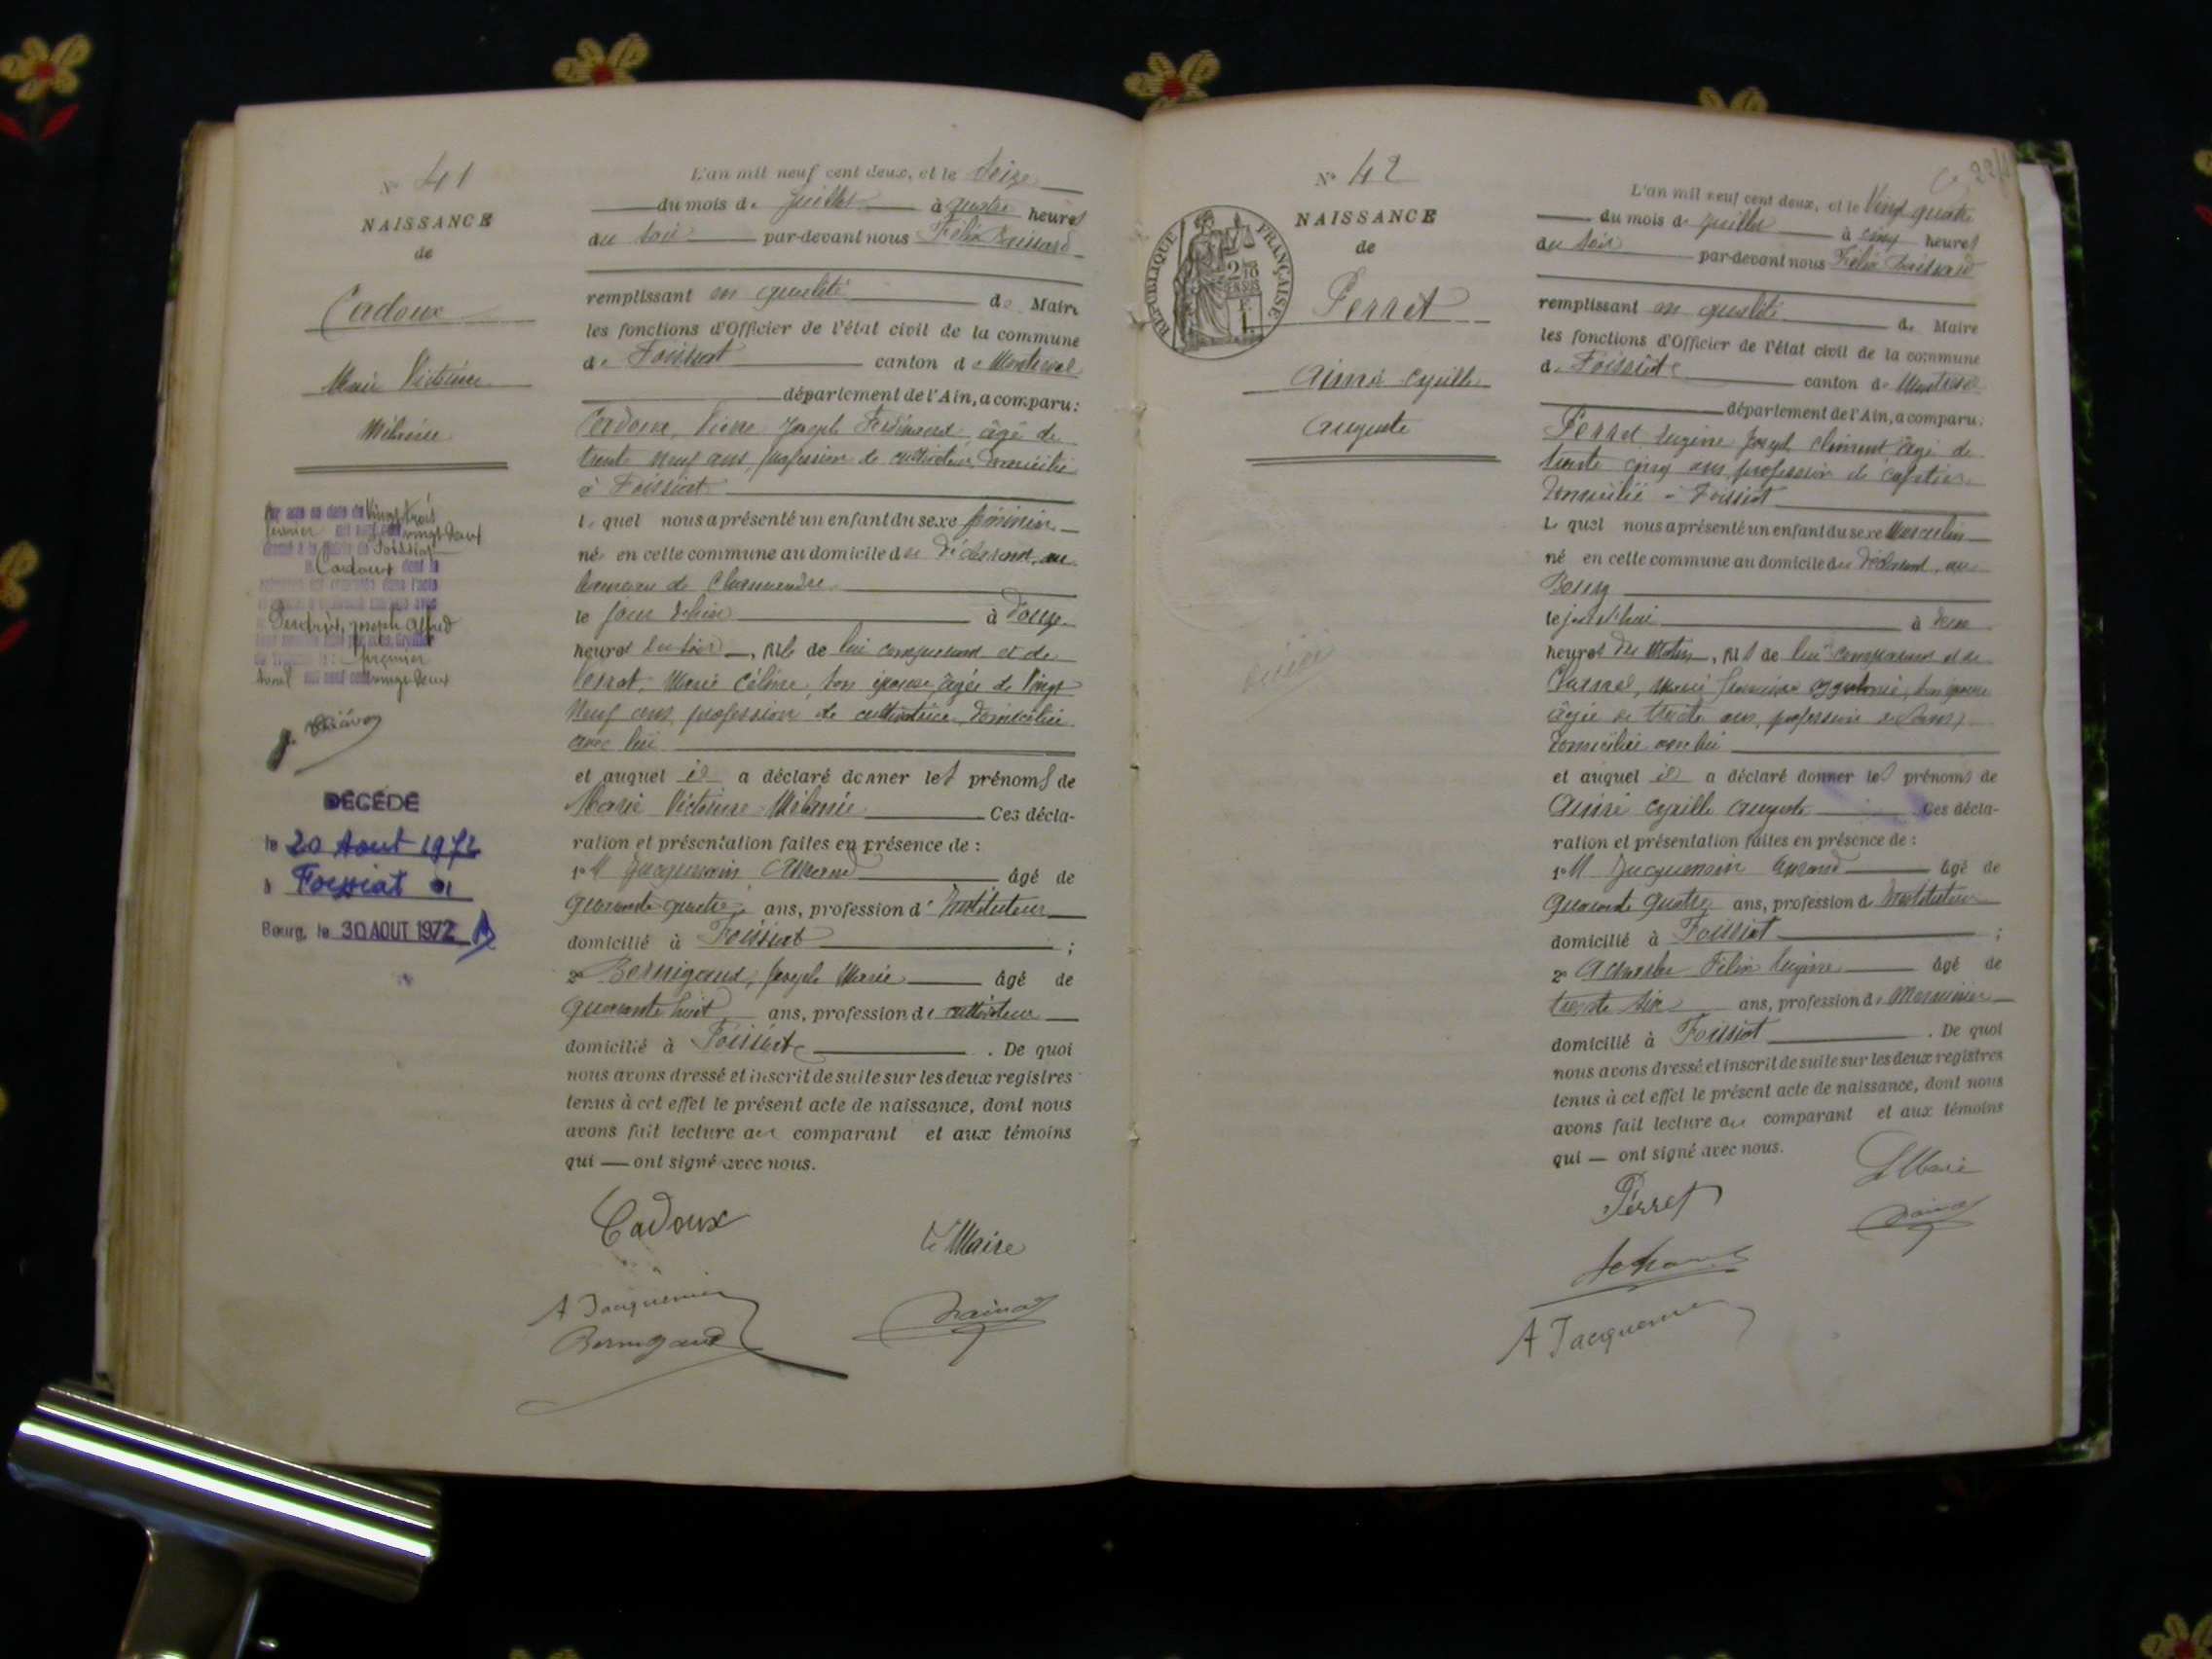 N° 41
NAISSANCE
de
Cadoux
Marie Victorine
Mélanie
vingt trois
février vingt deux
Foissiat
Cadoux dont la
Joseph Alfred
premier
avril mil neuf cent vingt deux
DÉCÉDÉ
le 20 Aout 1972
à Foissiat 01
Bourg, le 30 AOUT 1972
L'an mil neuf cent deux, et le seize
du mois de juillet à quatre heures
du soir par-devant nous Félix
remplissant en qualité de Maire
les fonctions d'Officier de l'état civil de la commune
de Foissiat canton de Montrevel
département de l'Ain, a comparu:
Cadoux, Pierre Joseph Ferdinand, âgé de
trente neuf ans, profession de cultivateur, domicilié
à Foissiat
lequel nous a présenté un enfant du sexe féminin
né en cette commune au domicile du déclarant, au
hameau de
le jour d'hier à onze
heures du soir, fille de lui comparant et de
Perrat, Marie Céline, son épouse, âgée de vingt
neuf ans, profession de cultivatrice, domiciliée
avec lui
et auquel il a déclaré donner les prénoms de
Marie Victorine Mélanie Ces décla-
ration et présentation faites en présence de :
1° M Jacquemin Armand âgé de
quarante quatre ans, profession d'Instituteur
domicilié à Foissiat ;
2° Bernigaud, Joseph Marie âgé de
quarante huit ans, profession de cultivateur
domicilié à Foissiat . De quoi
nous avons dressé et inscrit de suite sur les deux registres
tenus à cet effet le présent acte de naissance, dont nous
avons fait lecture au comparant et aux témoins
qui — ont signé avec nous.
Cadoux
Le Maire
A Jacquemin
Bernigaud
N° 42
NAISSANCE
de
Perret
Aimé Cyrille
Auguste
RÉPUBLIQUE FRANÇAISE
L'an mil neuf cent deux, et le vingt quatre
du mois de juillet à cinq heures
du soir par-devant nous Félix
remplissant en qualité de Maire
les fonctions d'Officier de l'état civil de la commune
de Foissiat canton de Montrevel
département de l'Ain, a comparu:
Perret Eugène Joseph Clément âgé de
trente cinq ans, profession de cafetier
domicilié à Foissiat
Lequel nous a présenté un enfant du sexe masculin
né en cette commune au domicile du déclarant, au
Bourg
le jour d'hui à deux
heures du matin, fils de lui comparant et de
Marie son épouse
âgée de trente ans, profession
domiciliée avec lui
et auquel il a déclaré donner les prénoms de
Aimé Cyrille Auguste Ces décla-
ration et présentation faites en présence de :
1° M Jacquemin Armand âgé de
quarante quatre ans, profession d'Instituteur
domicilié à Foissiat ;
2° Félix Eugène âgé de
trente six ans, profession de Menuisier
domicilié à Foissiat . De quoi
nous avons dressé et inscrit de suite sur les deux registres
tenus à cet effet le présent acte de naissance, dont nous
avons fait lecture au comparant et aux témoins
qui — ont signé avec nous.
Perret
Le Maire
A Jacquemin